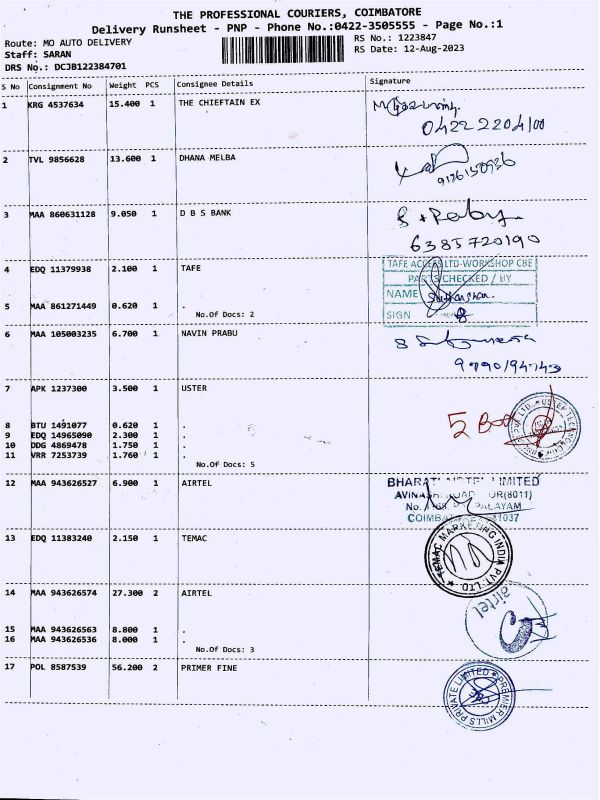 THE PROFESSIONAL COURIERS, COIMBATORE
Delivery Runsheet - PNP - Phone No.:0422-3505555 - Page No.:1
Route: MO AUTO DELIVERY
RS No.: 1223847
Staff: SARAN
RS Date: 12-Aug-2023
DRS No.: DCJB122384701
S No Consignment No Weight PCS Consignee Details Signature
1 KRG 4537634 15.400 1 THE CHIEFTAIN EX
0422 2204100
2 TVL 9856628 13.600 1 DHANA MELBA
9176150936
3 MAA 860631128 9.050 1 D B S BANK
6385720190
4 EDQ 11379938 2.100 1 TAFE
TAFE ACCESS LTD-WORKSHOP CBE
PARTS CHECKED / BY
NAME
SIGN
5 MAA 861271449 0.620 1 .
No.Of Docs: 2
6 MAA 105003235 6.700 1 NAVIN PRABU
9790194743
7 APK 1237300 3.500 1 USTER
5 Box
8 BTU 1491077 0.620 1 .
9 EDQ 14965090 2.300 1 .
10 DDG 4869478 1.750 1 .
11 VRR 7253739 1.760 1 .
No.Of Docs: 5
12 MAA 943626527 6.900 1 AIRTEL
BHARATI AIRTEL LIMITED
13 EDQ 11383240 2.150 1 TEMAC
TEMAC MARKETING INDIA PVT-LTD
14 MAA 943626574 27.300 2 AIRTEL
airtel
15 MAA 943626563 8.800 1 .
16 MAA 943626536 8.000 1 .
No.Of Docs: 3
17 POL 8587539 56.200 2 PRIMER FINE
PREMIER MILLS PRIVATE LIMITED